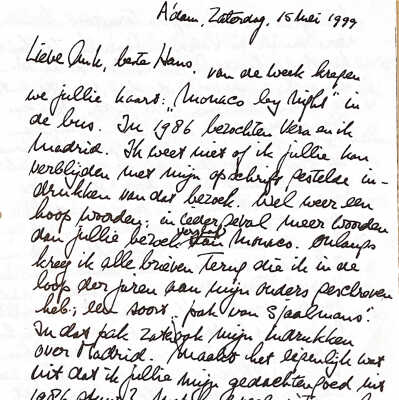 A'dam, Zaterdag, 15 mei 1999
Lieve Ank, beste Hans, van de week kregen
we jullie kaart: „Monaco by Night" in
de bus. In 1986 bezochten Vera en ik
Madrid. Ik weet niet of ik jullie kan
verblijden met mijn opschrift gestelde in-
drukken van dat bezoek. Wel weer een
hoop woorden; in ieder geval meer woorden
dan jullie bezoek vergund aan Monaco. Onlangs
kreeg ik alle brieven terug die ik in de
loop der jaren aan mijn ouders geschreven
heb; een soort „pak van Sjaalmans".
In dat pak zaten ook mijn indrukken
over Madrid. Maakt het eigenlijk wat
uit dat ik jullie mijn gedachtengoed uit
1986